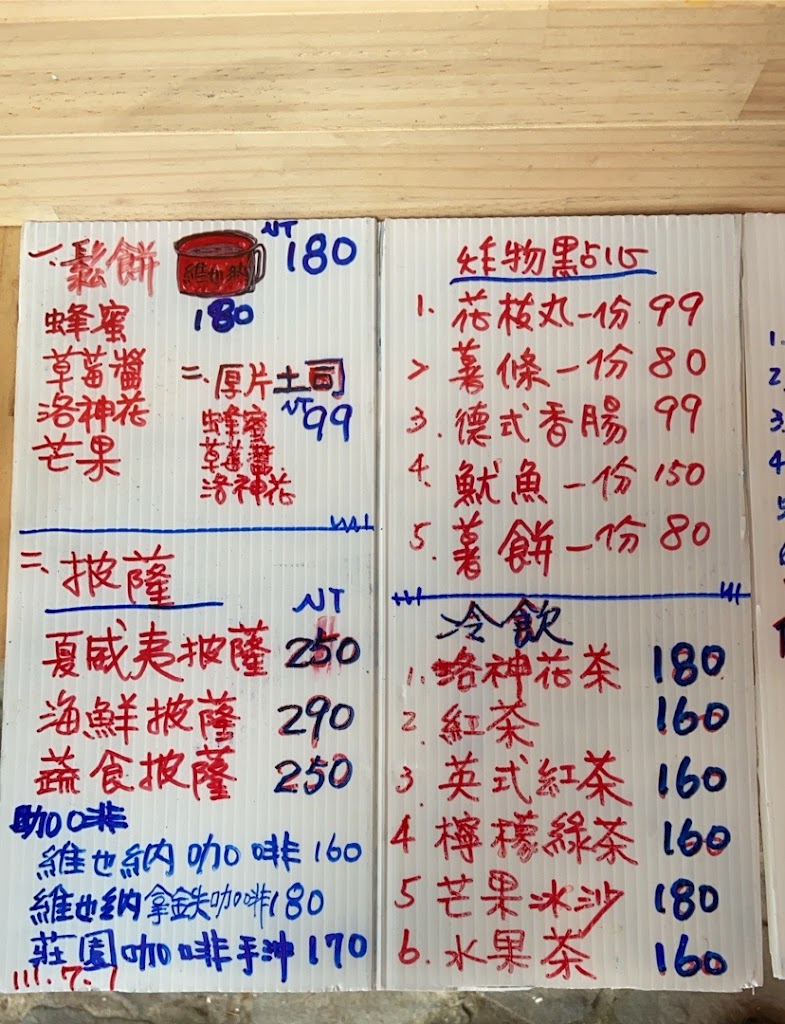 一、鬆餅 NT 180
維也納
180
蜂蜜
草莓醬
洛神花
芒果
二、厚片土司
NT 99
蜂蜜
草莓醬
洛神花
二、披薩
NT
夏威夷披薩 250
海鮮披薩 290
蔬食披薩 250
咖啡
維也納咖啡 160
維也納拿鉄咖啡 180
莊園咖啡手沖 170
111.7.1
炸物點心
1. 花枝丸一份 99
2 薯條一份 80
3. 德式香腸 99
4. 魷魚一份 150
5. 薯餅一份 80
冷飲
1. 洛神花茶 180
2. 紅茶 160
3 英式紅茶 160
4 檸檬綠茶 160
5 芒果冰沙 180
6. 水果茶 160
1.
2.
3.
4